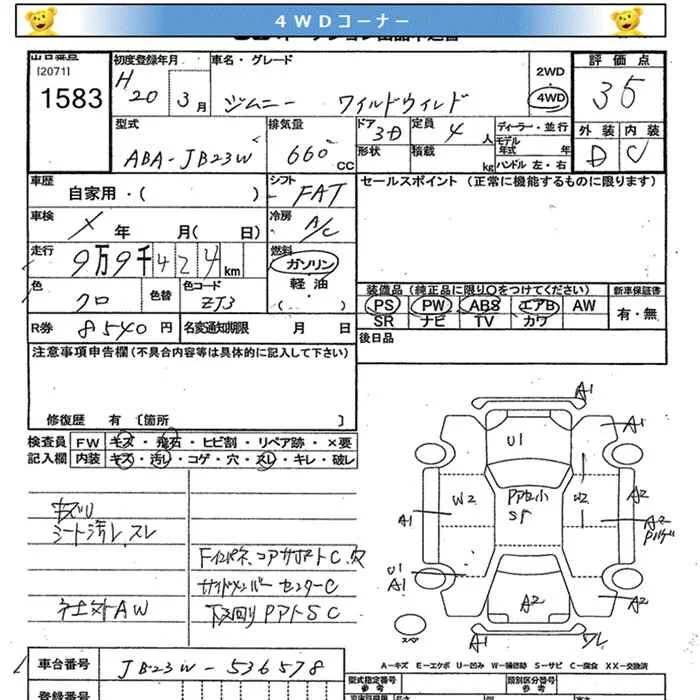 4WDコーナー
出品番号
[2071]
1583
初度登録年月
H20 3月
車名・グレード
ジムニー ワイルドウィンド
2WD
4WD
評価点
35
外装 内装
D C
型式
ABA-JB23W
排気量
660 CC
ドア
3D
定員
4人
形状
積載 kg
ディーラー・並行
モデル年式 年
ハンドル 左・右
車歴
自家用・( )
シフト
FAT
セールスポイント (正常に機能するものに限ります)
車検
× 年 月( 日)
冷房
A/C
走行
9万9千424km
燃料
ガソリン
軽油
・( )
色
クロ
色替
色コード
ZJ3
装備品 (純正品に限り○をつけてください)
PS PW ABS エアB AW
SR ナビ TV カワ
新車保証書
有・無
R券 8540円
名変通知期限 月 日
後日品
注意事項申告欄(不具合内容等は具体的に記入して下さい)
修復歴 有 〔箇所 〕
検査員記入欄
FW キズ・飛石・ヒビ割・リペア跡・×要
内装 キズ・汚レ・コゲ・穴・スレ・キレ・破レ
キズU
シート汚レ、スレ
Fインパネ、コアサポートC、穴
サイドメンバー センターC
ネ土外AW
下回りPアトSC
A1
U1
A1
W2
Pアセ小
SF
U2
A2
A1
A2
U1
A1
A2
スペア
A1
ワレ
A-キズ E-エクボ U-凹み W-補修跡 S-サビ C-腐食 XX-交換済
車台番号
JB23W-536578
登録番号
型式指定番号
参考
類別区分番号
参考